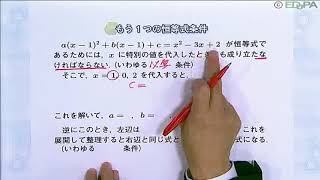 EDUPA
もう１つの恒等式条件
a(x－1)²＋b(x－1)＋c＝x²－3x＋2 が恒等式で
あるためには、x に特別の値を代入したときも成り立たな
ければならない。(いわゆる 必要 条件)
そこで、x＝1, 0, 2 を代入すると、
c＝
これを解いて、a＝　, b＝
逆にこのとき、左辺は
展開して整理すると右辺と同じ
(いわゆる　　条件)